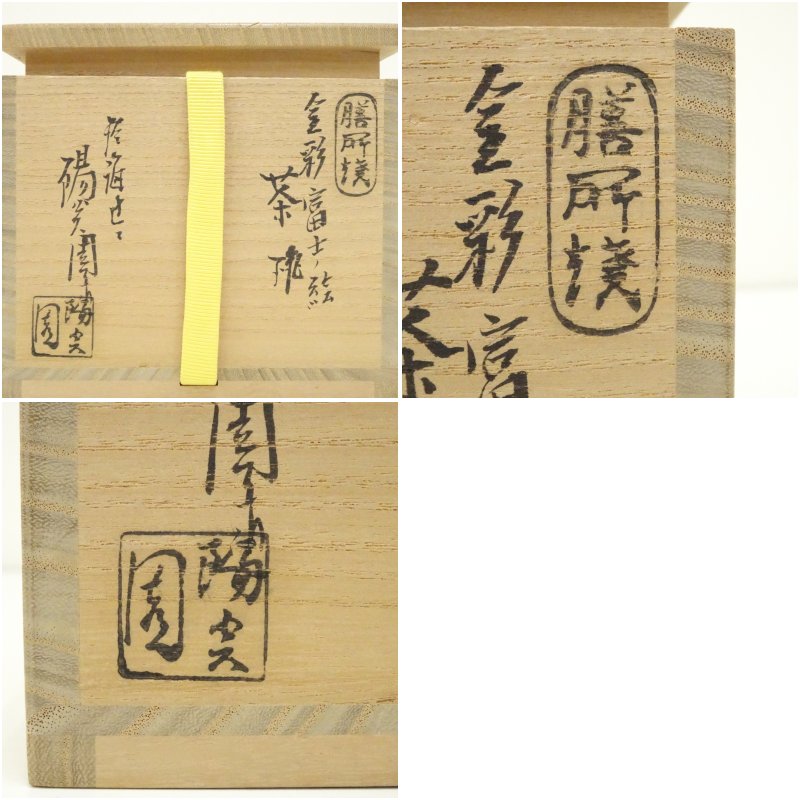 膳所焼
金彩富士ノ絵
茶埦
陽炎園
陽炎
園
膳所焼
金彩富
茶
園
陽炎
園